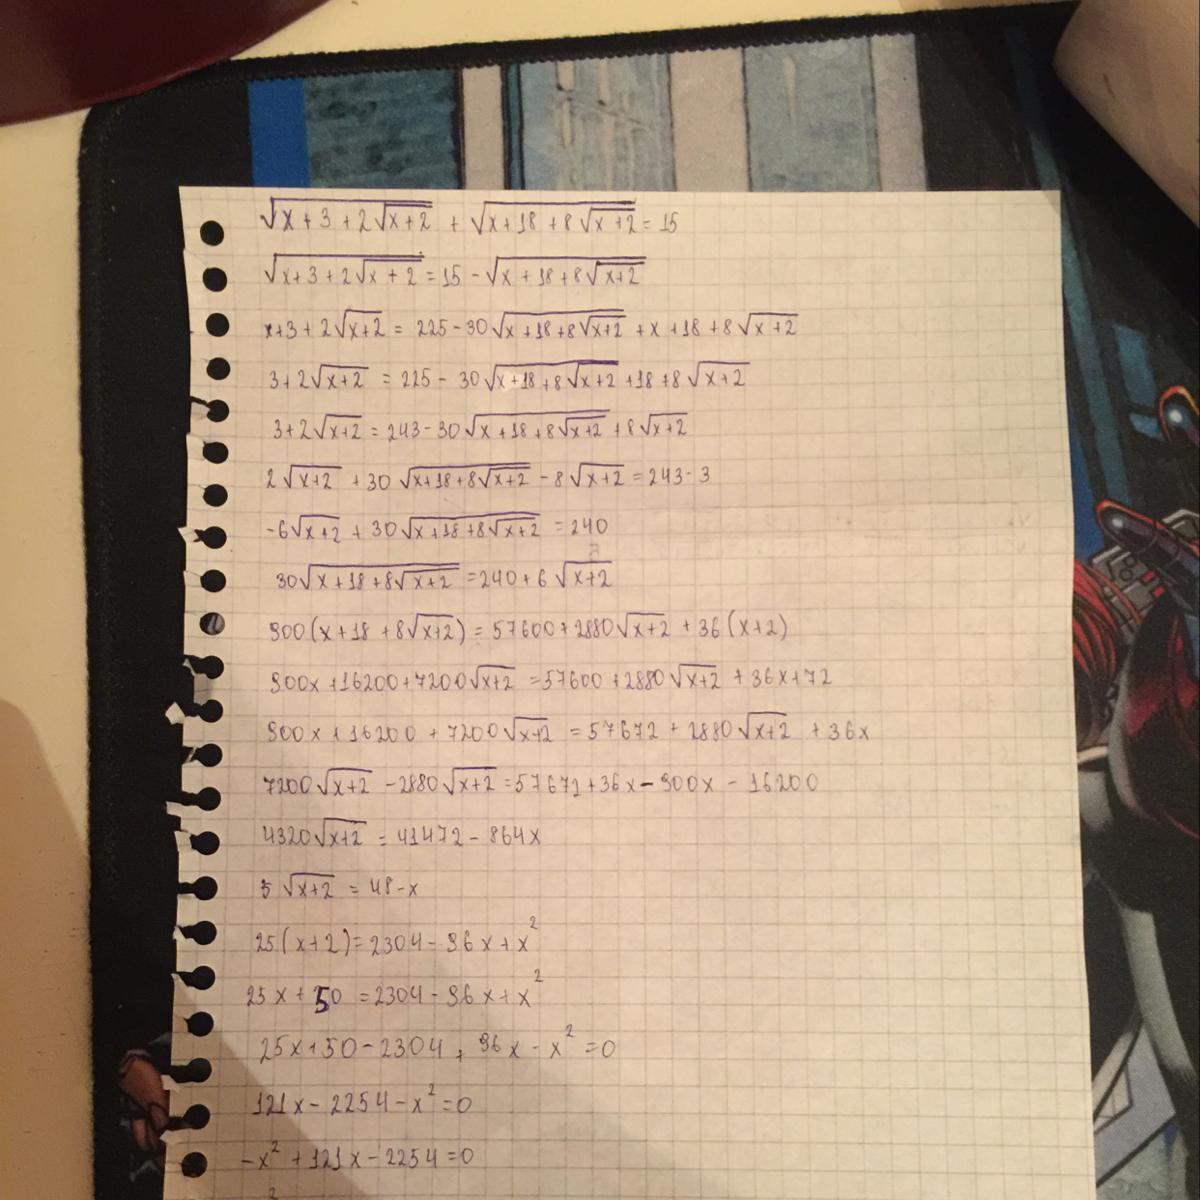 √(x+3+2√(x+2)) + √(x+18+8√(x+2)) = 15
√(x+3+2√(x+2)) = 15 - √(x+18+8√(x+2))
x+3+2√(x+2) = 225-30√(x+18+8√(x+2)) + x+18+8√(x+2)
3+2√(x+2) = 225-30√(x+18+8√(x+2)) +18+8√(x+2)
3+2√(x+2) = 243-30√(x+18+8√(x+2)) +8√(x+2)
2√(x+2) +30√(x+18+8√(x+2)) -8√(x+2) = 243-3
-6√(x+2) + 30√(x+18+8√(x+2)) = 240
30√(x+18+8√(x+2)) = 240+6√(x+2)
900(x+18+8√(x+2)) = 57600+2880√(x+2) +36(x+2)
900x+16200+7200√(x+2) = 57600+2880√(x+2) +36x+72
900x+16200+7200√(x+2) = 57672+2880√(x+2) +36x
7200√(x+2) -2880√(x+2) = 57672+36x-900x-16200
4320√(x+2) = 41472-864x
5√(x+2) = 48-x
25(x+2)=2304-96x+x²
25x+50=2304-96x+x²
25x+50-2304+96x-x²=0
121x-2254-x²=0
-x²+121x-2254=0